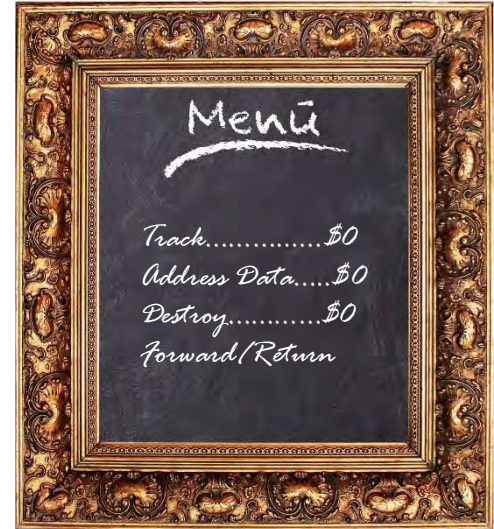 Menū
Track...............$0
Address Data.....$0
Destroy............$0
Forward/Return